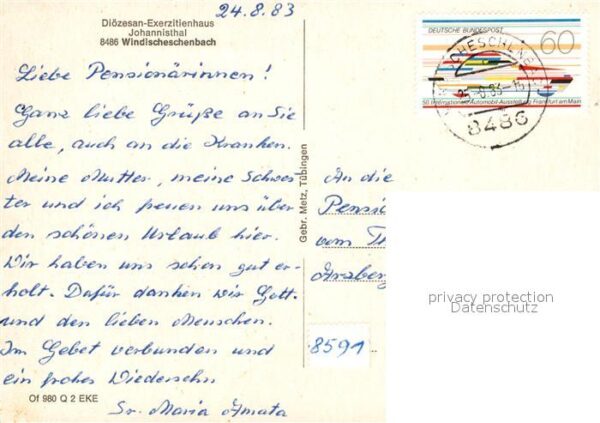 24.8.83
Diözesan-Exerzitienhaus
Johannisthal
8486 Windischeschenbach
Liebe Pensionärinnen!
Ganz liebe Grüße an Sie
alle, auch an die Kranken.
Meine Mutter, meine Schwes-
ter und ich freuen uns über
den schönen Urlaub hier.
Wir haben uns schon gut er-
holt. Dafür danken wir Gott
und den lieben Menschen.
Im Gebet verbunden und
ein frohes Wiedersehn
Sr. Maria Amata
Of 980 Q 2 EKE
Gebr. Metz, Tübingen
DEUTSCHE BUNDESPOST
60
50. Internationale Automobil-Ausstellung Frankfurt am Main
8486
An die
Pensio
vom Th
Arzberg
8591
privacy protection
Datenschutz